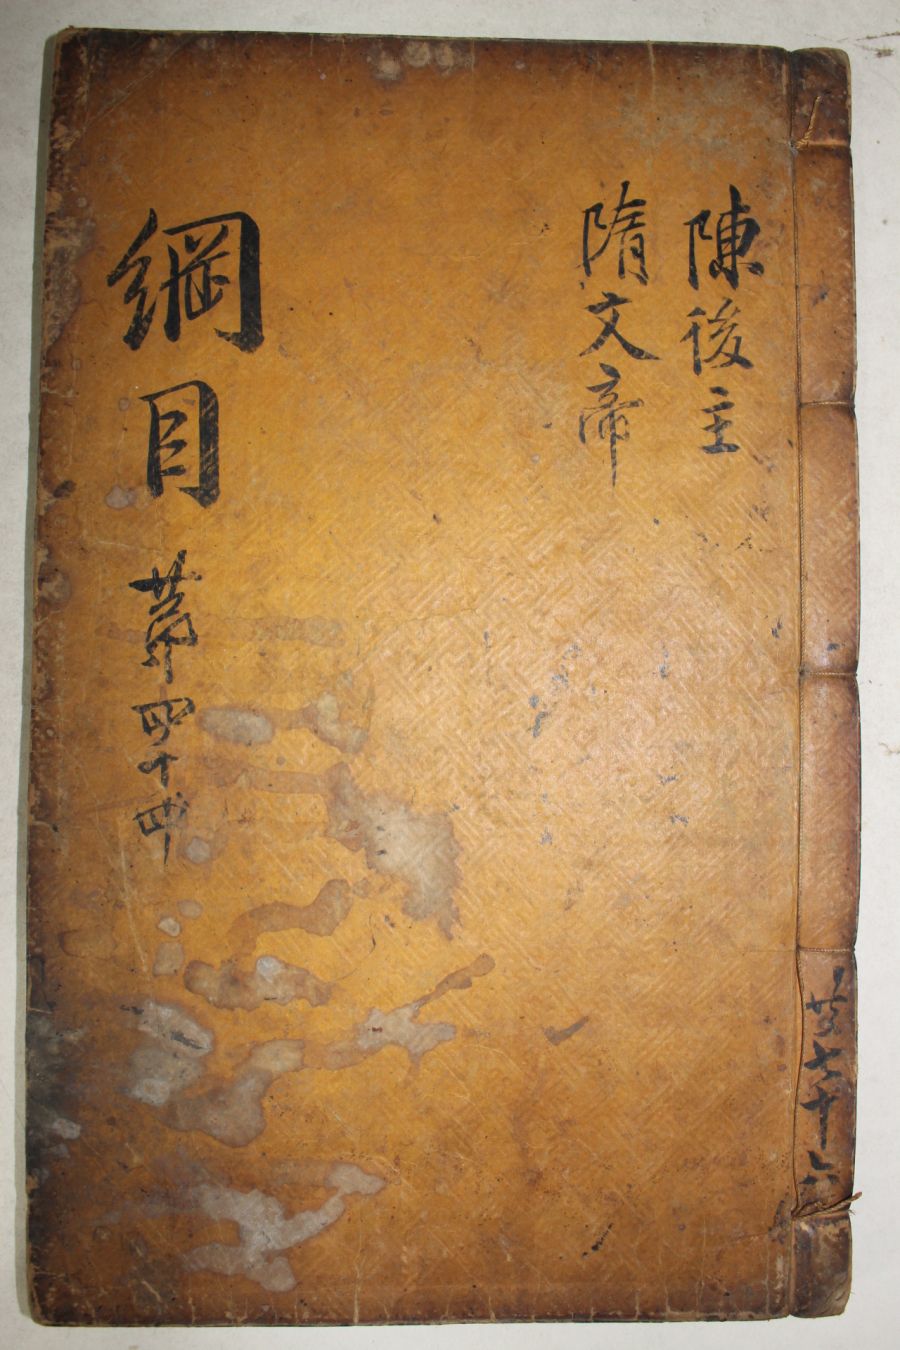 陳後主
隋文帝
綱目 第四十四
共七十六